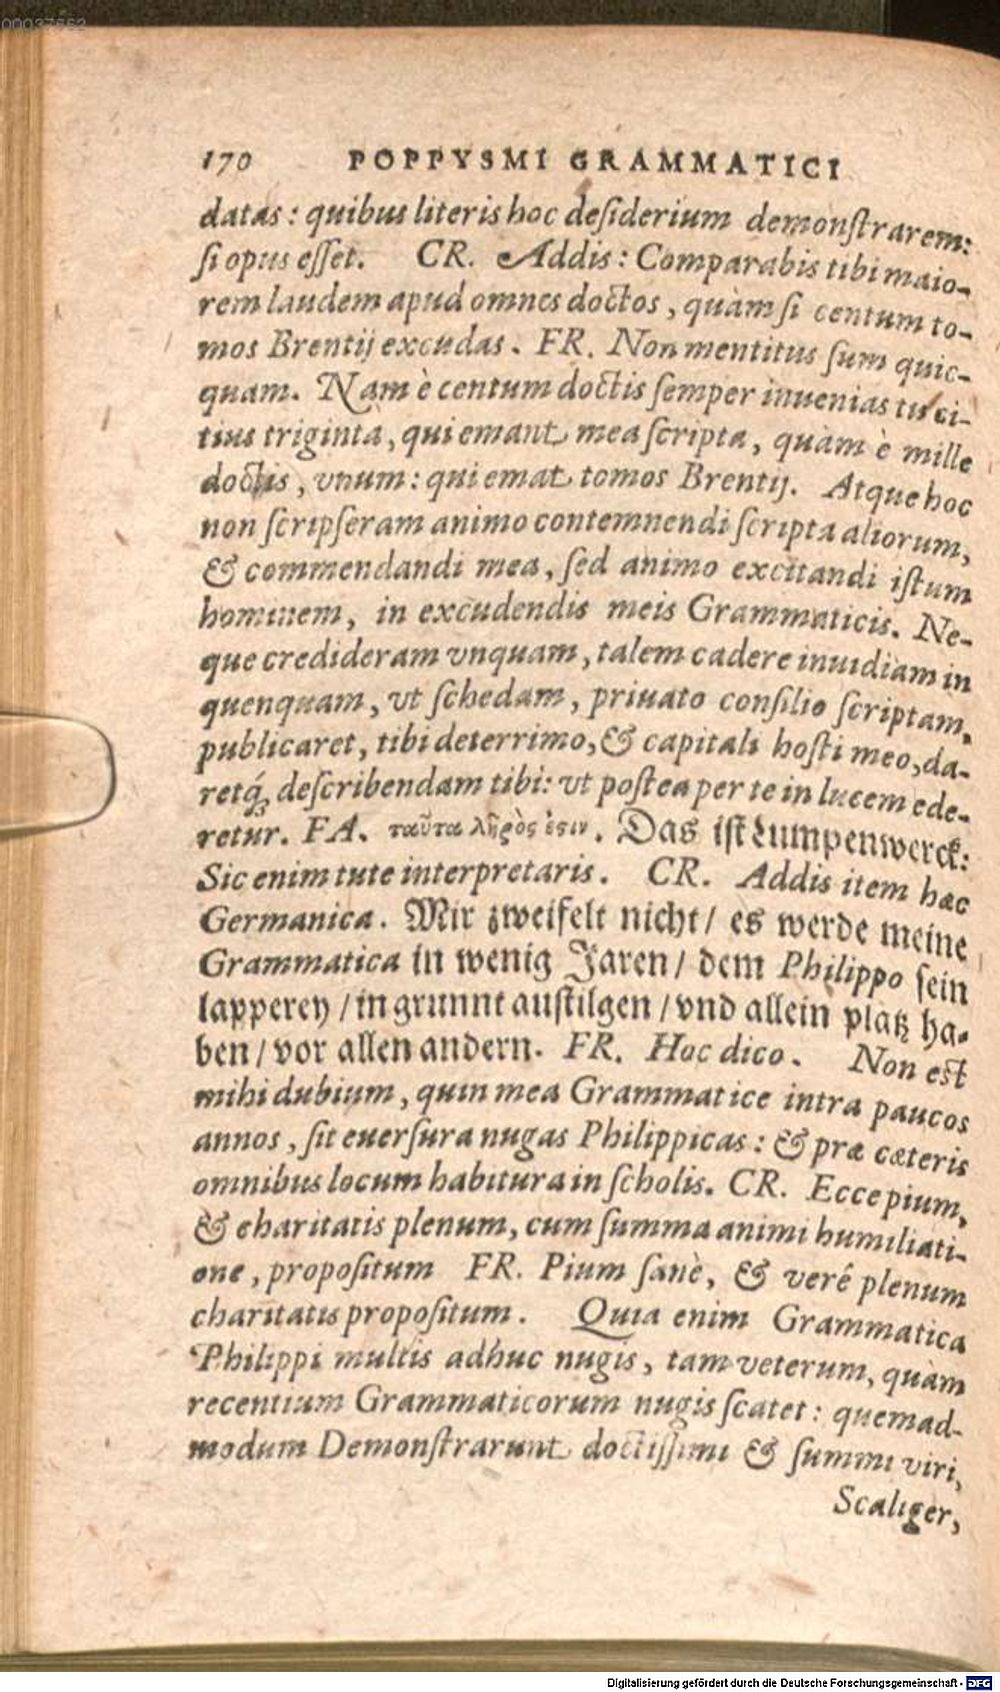 00037562
170 POPPYSMI GRAMMATICI
datas: quibus literis hoc deſiderium demonſtrarem:
ſi opus eſſet. CR. Addis: Comparabis tibi maio-
rem laudem apud omnes doctos, quàm ſi centum to-
mos Brentij excudas. FR. Non mentitus ſum quic-
quam. Nam è centum doctis ſemper inuenias tu ci-
tius triginta, qui emant mea ſcripta, quàm è mille
doctis, vnum: qui emat tomos Brentij. Atque hoc
non ſcripſeram animo contemnendi ſcripta aliorum,
& commendandi mea, ſed animo excitandi iſtum
hominem, in excudendis meis Grammaticis. Ne-
que credideram vnquam, talem cadere inuidiam in
quenquam, vt ſchedam, priuato conſilio ſcriptam,
publicaret, tibi deterrimo, & capitali hoſti meo, da-
retq́; deſcribendam tibi: vt poſtea per te in lucem ede-
retur. FA. ταῦτα λῆρός ἐσιν. Das iſt Lumpenwerck:
Sic enim tute interpretaris. CR. Addis item hæc
Germanica. Mir zweifelt nicht/ es werde meine
Grammatica in wenig Jaren/ dem Philippo ſein
lapperey/ in grunnt auſtilgen/ vnd allein platz ha-
ben/ vor allen andern. FR. Hoc dico. Non est
mihi dubium, quin mea Grammatice intra paucos
annos, ſit euerſura nugas Philippicas: & præ cæteris
omnibus locum habitura in ſcholis. CR. Ecce pium,
& charitatis plenum, cum ſumma animi humiliati-
one, propoſitum FR. Pium ſanè, & verè plenum
charitatis propoſitum. Quia enim Grammatica
Philippi multis adhuc nugis, tam veterum, quàm
recentium Grammaticorum nugis ſcatet: quemad-
modum Demonſtrarunt doctiſſimi & ſummi viri,
Scaliger,
Digitalisierung gefördert durch die Deutsche Forschungsgemeinschaft - DFG